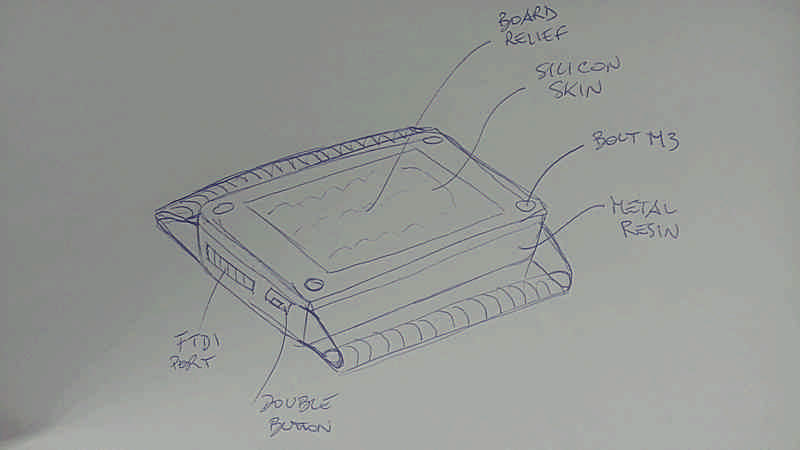 BOARD
RELIEF
SILICON
SKIN
BOLT M3
METAL
RESIN
FTDI
PORT
DOUBLE
BUTTON